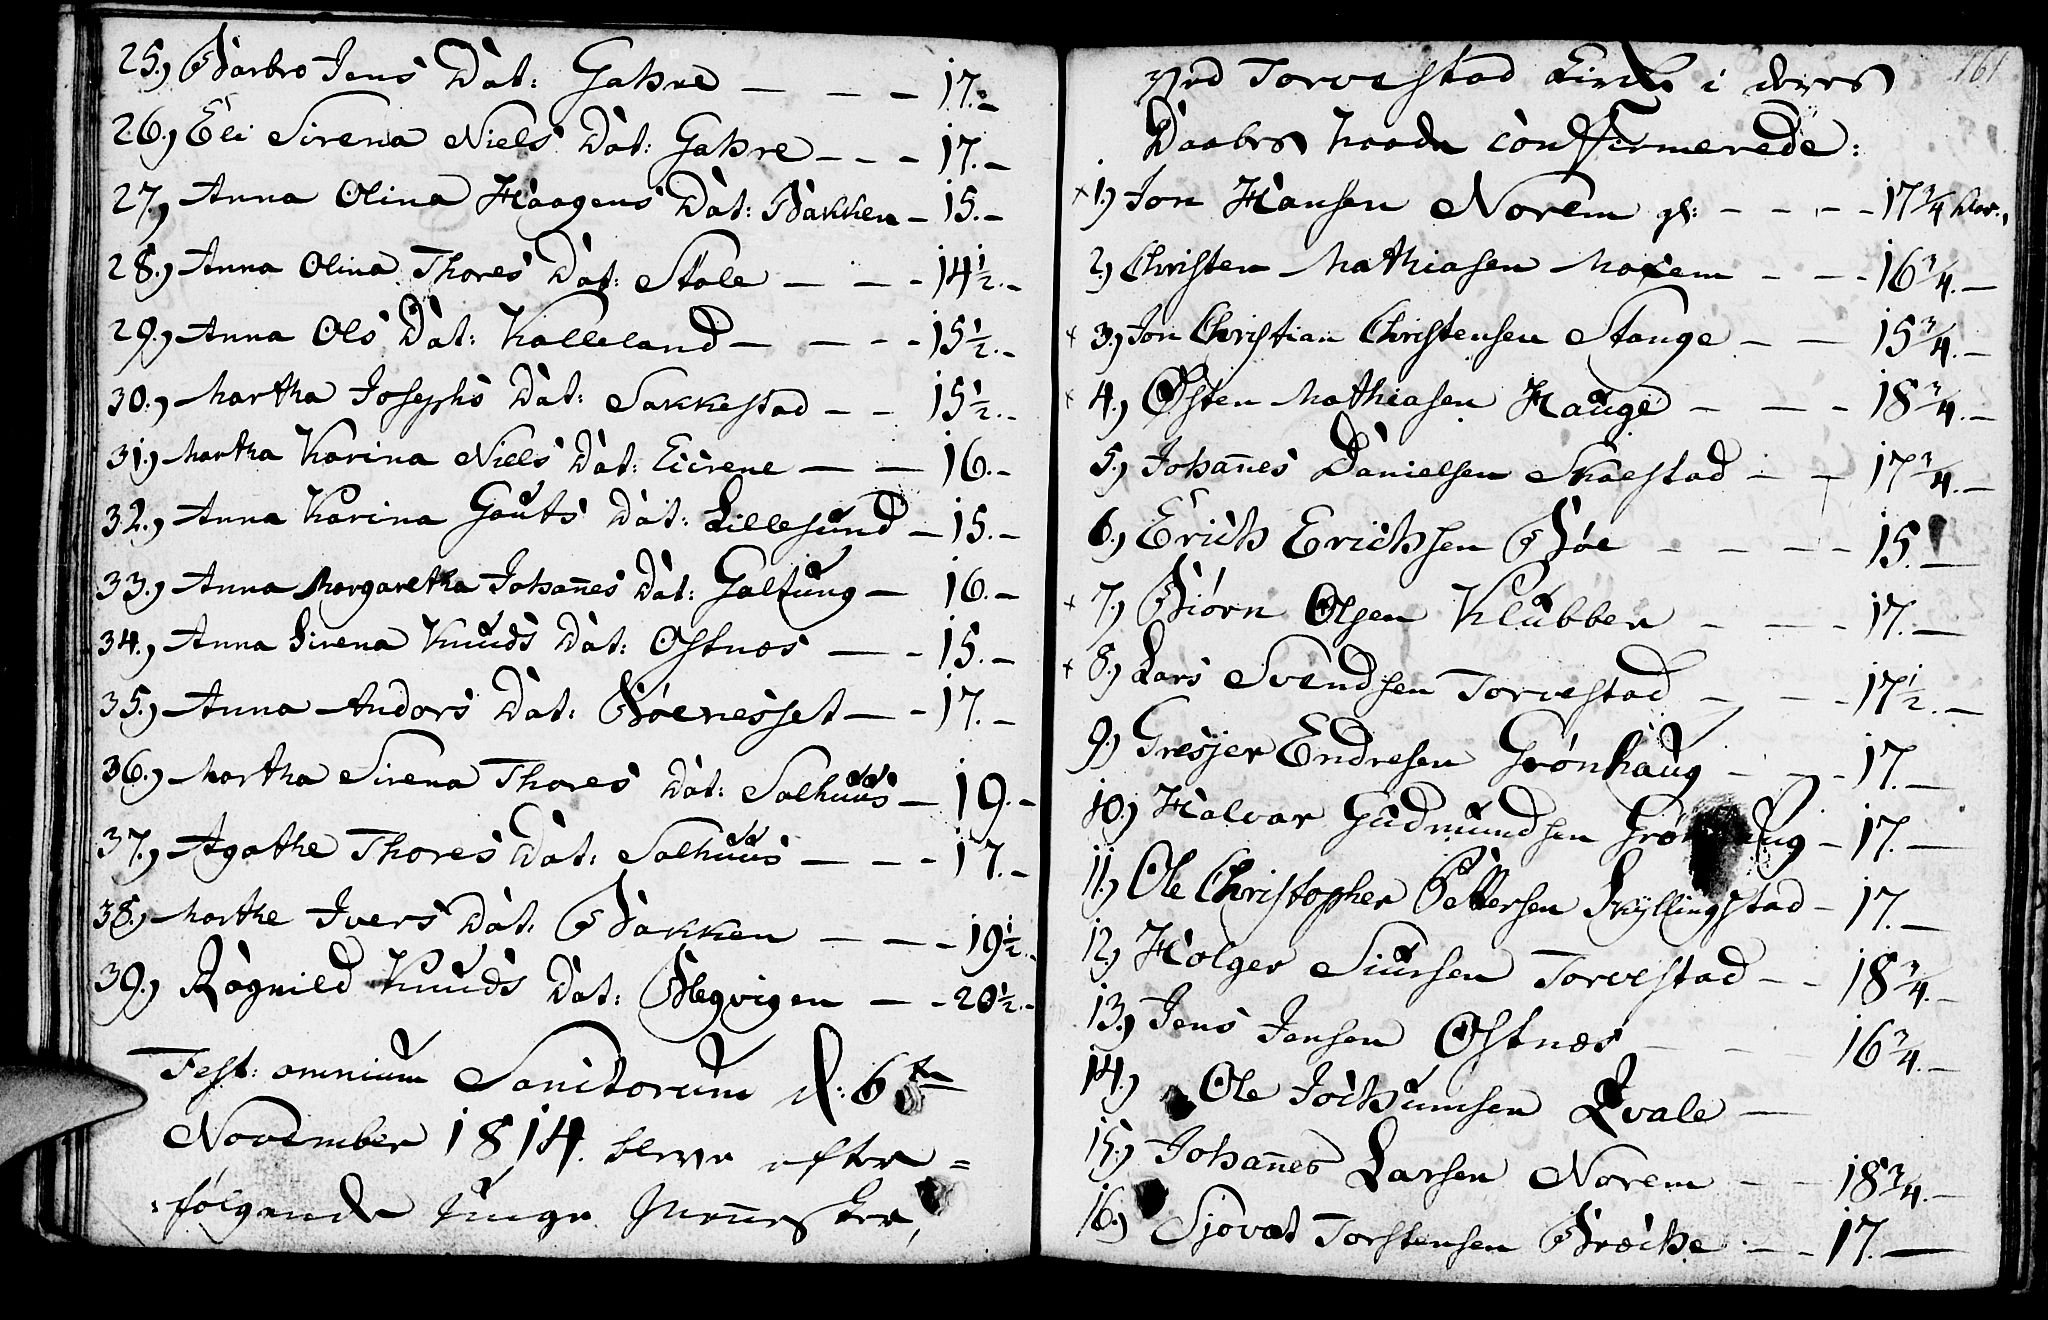 25.) Barbro Jens Dat: Gahre — — — 17.–
26.) Eli Sirena Niels Dat: Gahre – – – 17.–
27.) Anna Olina Haagens Dat: Bakken – 15.–
28.) Anna Olina Thores Dat: Stole — – – 14½.–
29.) Anna Ols Dat: Kalleland — – – – 15½.–
30.) Martha Josephs Dat: Sakkestad – – 15½.–
31.) Martha Karina Niels Dat: Eiirene — — 16.–
32.) Anna Karina Gauts Dat: Lillesund – 15.–
33.) Anna Margaretha Johañes Dat: Galtung – 16.–
34.) Anna Sirena Knuds Dat: Ostnæs — – 15.–
35.) Anna Andors Dat: Böenesset — – 17.–
36.) Martha Sirena Thores Dat: Salhuus – 19.–
37.) Agathe Thores Dat: Salhuus — – – 17.–
38.) Marthe Ivers Dat: Bakken — — – 19½.–
39.) Ragnild Knuds Dat: Blegvigen — – 20½.–
Fest: omnium Sanctorum d: 6te
November 1814. bleve efter=
:følgende Unge Menesker,
161
ved Torvestad Kirke i deres
Daabes Naade confirmerede:
× 1.) Jon Hansen Norem – – – – 17¾ Aar.,
2.) Christen Mathiasen Norem – – – 16¾.—
× 3.) Jon Christian Christensen Stange – — 15¾.—
× 4.) Østen Mathiasen Hauge – — – 18¾.—
5.) Johañes Danielsen Skaestad – – 17¾.—
6.) Erich Erichsen Böe – – – – 15.—
× 7.) Biörn Olsen Klubben – — – 17.—
× 8.) Lars Svendsen Torvestad – — – 17½.—
9.) Gresjer Endresen Grönhaug – – – 17.—
10.) Halvar Gudmundsen Grönhaug – 17.—
11.) Ole Christopher Pettersen Skyllingstad – 17.—
12.) Holger Siursen Torvestad – – 18¾.–
13.) Jens Jensen Ostnæs – – – 16¾.–
14.) Ole Jochumsen Qvale —
15.) Johañes Larsen Norem – – 18¾.–
16.) Sjovat Torstensen Bræcke – – 17.—